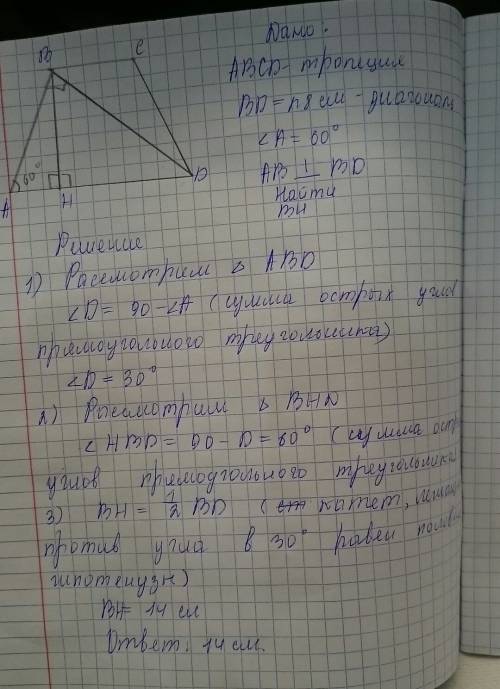 Дано:
ABCD - трапеция
BD = 28 см - диагональ
∠A = 60°
AB ⊥ BD
Найти
BH
B C
60°
A H D
Решение
1) Рассмотрим △ ABD
∠D = 90 - ∠A (сумма острых углов
прямоугольного треугольника)
∠D = 30°
2) Рассмотрим △ BHD
∠HBD = 90 - D = 60° (сумма остр
углов прямоугольного треугольника
3) BH = 1/2 BD ( катет, лежащ
против угла в 30° равен полови
гипотенузы)
BH = 14 см
Ответ: 14 см.